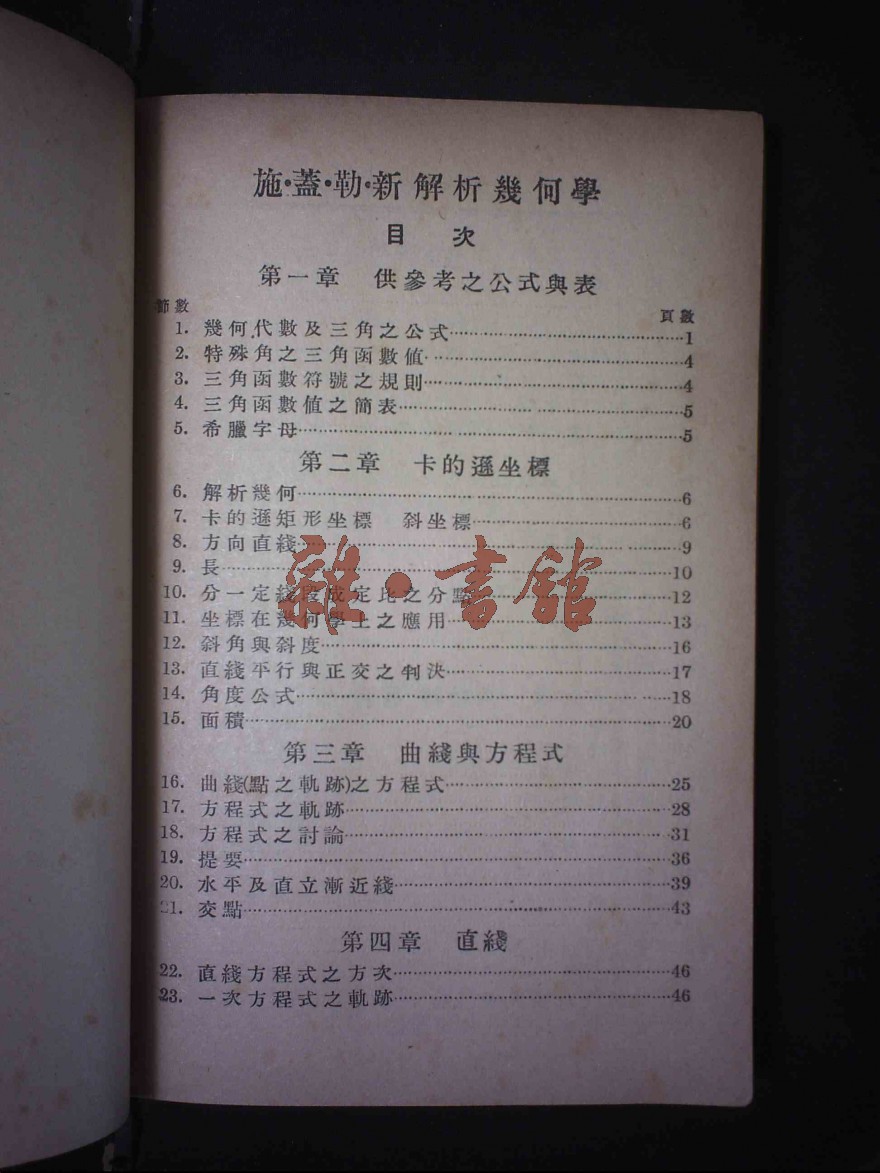 施·蓋·勒·新解析幾何學
目 次
第一章 供參考之公式與表
節數 頁數
1. 幾何代數及三角之公式……1
2. 特殊角之三角函數値……4
3. 三角函數符號之規則……4
4. 三角函數値之簡表……5
5. 希臘字母……5
第二章 卡的遜坐標
6. 解析幾何……6
7. 卡的遜矩形坐標 斜坐標……6
8. 方向直綫……9
9. 長……10
10. 分一定綫段成定比之分點……12
11. 坐標在幾何學上之應用……13
12. 斜角與斜度……16
13. 直綫平行與正交之判決……17
14. 角度公式……18
15. 面積……20
雜·書舘
第三章 曲綫與方程式
16. 曲綫(點之軌跡)之方程式……25
17. 方程式之軌跡……28
18. 方程式之討論……31
19. 提要……36
20. 水平及直立漸近綫……39
21. 交點……43
第四章 直綫
22. 直綫方程式之方次……46
23. 一次方程式之軌跡……46